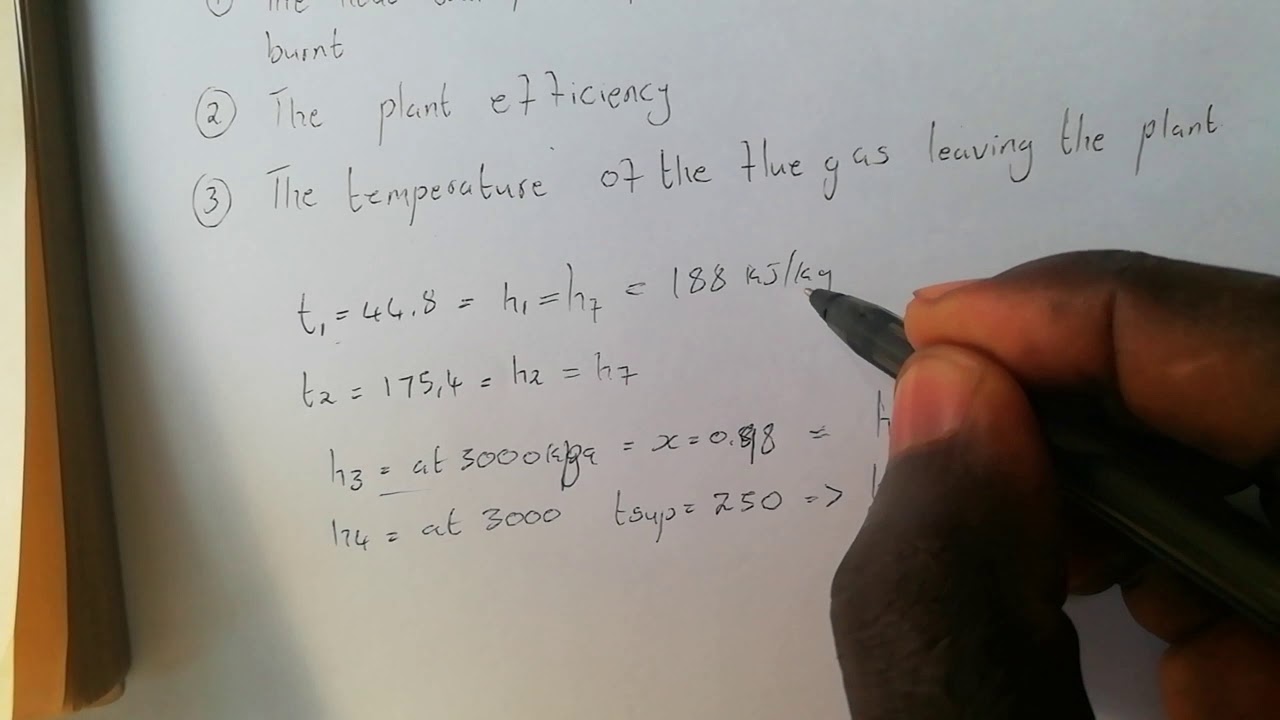 ① The
burnt
② The plant efficiency
③ The temperature of the flue gas leaving the plant
t₁ = 44.8 = h₁ = h₇ = 188 kJ/kg
t₂ = 175,4 = h₂ = h₇
h₃ = at 3000kpa = x = 0.98 = h
h₄ = at 3000 tsup = 250 =>